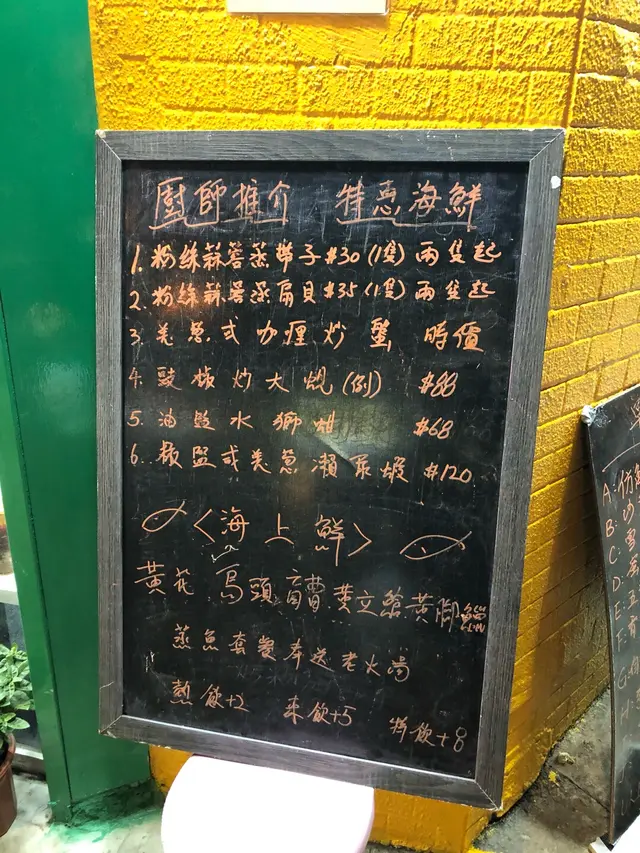 廚師推介 特惠海鮮
1. 粉絲蒜蓉蒸帶子 $30 (1隻) 兩隻起
2. 粉絲蒜蓉蒸扇貝 $35 (1隻) 兩隻起
3. 羌葱式咖喱炒蟹 時價
4. 豉椒炒大蜆(例) $88
5. 油鹽水獅蚶 $68
6. 椒鹽或羌葱瀨尿蝦 $120
〈海上鮮〉
黃花 烏頭 黃立鯧 黃腳鱲
蒸魚套餐奉送老火湯
熱飲+2 凍飲+5 特飲+8
A:
B:
C:
D:
E:
F:
G:
H: